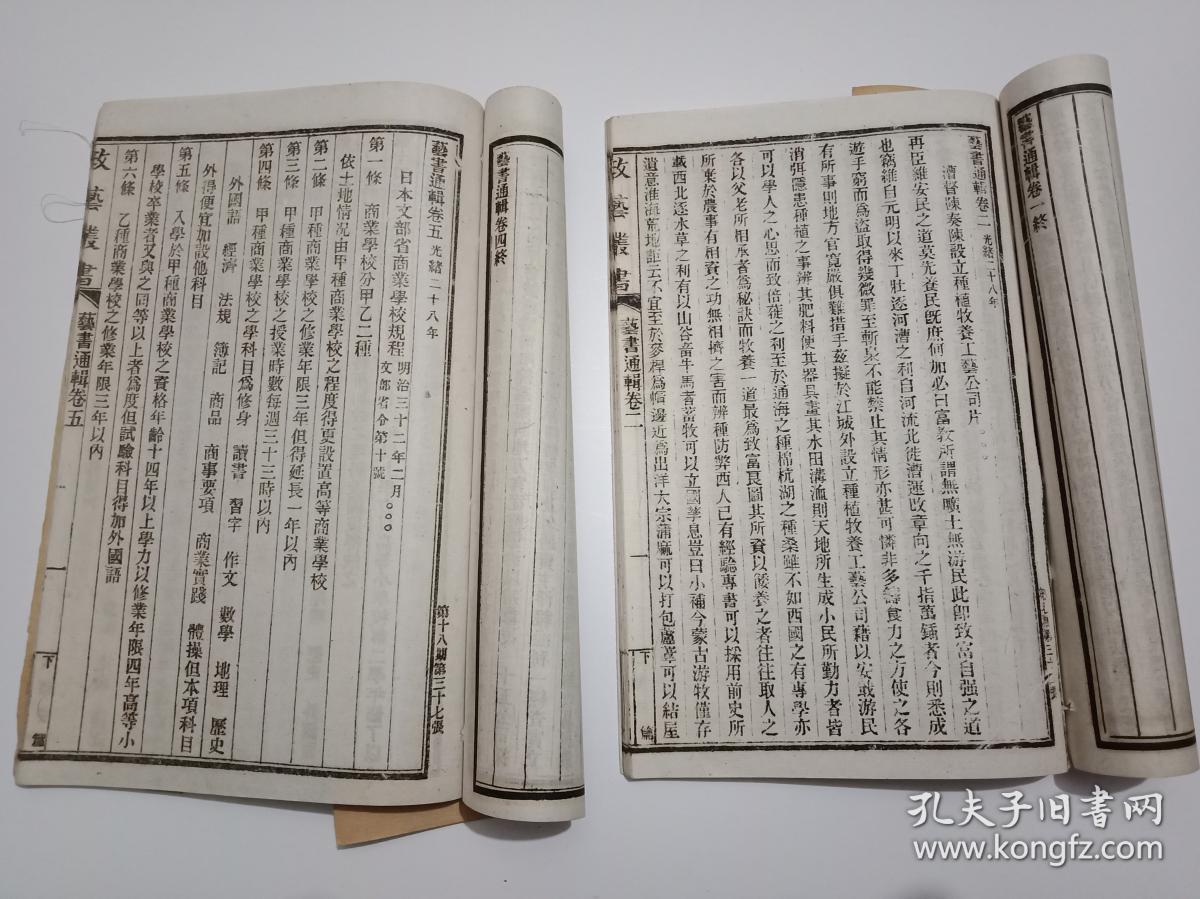 藝書通輯卷一終
藝書通輯卷二 光緒二十八年
漕督陳奏陳設立種植牧養工藝公司片
再臣維安民之道莫先養民既庶何加必曰富教所謂無曠土無游民此卽致富自强之道
也竊維自元明以來丁壯逐河漕之利自河流北徙漕運改章向之千指萬錘者今則悉成
遊手窮而爲盜取得幾微罪至斬梟不能禁止其情形亦甚可憐非多籌食力之方使之各
有所事則地方官寬嚴俱難措手兹擬於江城外設立種植牧養工藝公司藉以安戢游民
消弭隱患種植之事辨其肥料便其器具畫其水田溝洫則天地所生成小民所勤力者皆
可以學人之心思而致倍蓰之利至於通海之種棉杭湖之種桑雖不如西國之有專學亦
各以父老所相承者爲秘訣而牧養一道最爲致富良圖其所資以餧養之者往往取人之
所棄於農事有相資之功無相擠之害而辨種防弊西人已有經驗專書可以採用前史所
載西北逐水草之利有以山谷畜牛馬者蓄牧可以立國孳息豈曰小補今蒙古游牧僅存
遺意淮海荒地詎云不宜至於麥桿爲帽邊近爲出洋大宗蒲蔴可以打包蘆葦可以結屋
政藝叢書 藝書通輯卷二 一 下 篇
藝書通輯卷四終
藝書通輯卷五 光緒二十八年 第十八期第三十七張
日本文部省商業學校規程 明治三十二年二月文部省令第十號
第一條 商業學校分甲乙二種
依土地情况由甲種商業學校之程度得更設置高等商業學校
第二條 甲種商業學校之修業年限三年但得延長一年以內
第三條 甲種商業學校之授業時數每週三十三時以內
第四條 甲種商業學校之學科目爲修身 讀書 習字 作文 數學 地理 歷史
外國語 經濟 法規 簿記 商品 商事要項 商業實踐 體操但本項科目
外得便宜加設他科目
第五條 入學於甲種商業學校之資格年齡十四年以上學力以修業年限四年高等小
學校卒業者又與之同等以上者爲度但試驗科目得加外國語
第六條 乙種商業學校之修業年限三年以內
政藝叢書 藝書通輯卷五 一 下 篇
孔夫子旧书网
www.kongfz.com